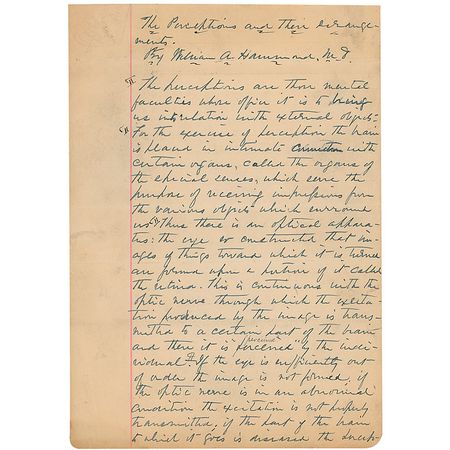 The Perceptions and their derange-
ments.
By William A Hammond, M.D.
The perceptions are those mental
faculties whose office it is to bring
us into relation with external objects.
For the exercise of perception the brain
is placed in intimate connection with
certain organs, called the organs of
the special senses, which serve the
purpose of receiving impressions from
the various objects which surround
us. Thus there is an optical appara-
tus: the eye so constructed that im-
ages of things toward which it is turned
are formed upon a portion of it called
the retina. This is continuous with the
optic nerve through which the excita-
tion produced by the image is trans-
mitted to a certain part of the brain
and there it is "perceived" by the indi-
vidual. If the eye is sufficiently out
of order the image is not formed, if
the optic nerve is in an abnormal
condition the excitation is not properly
transmitted, if the part of the brain
to which it goes is diseased the